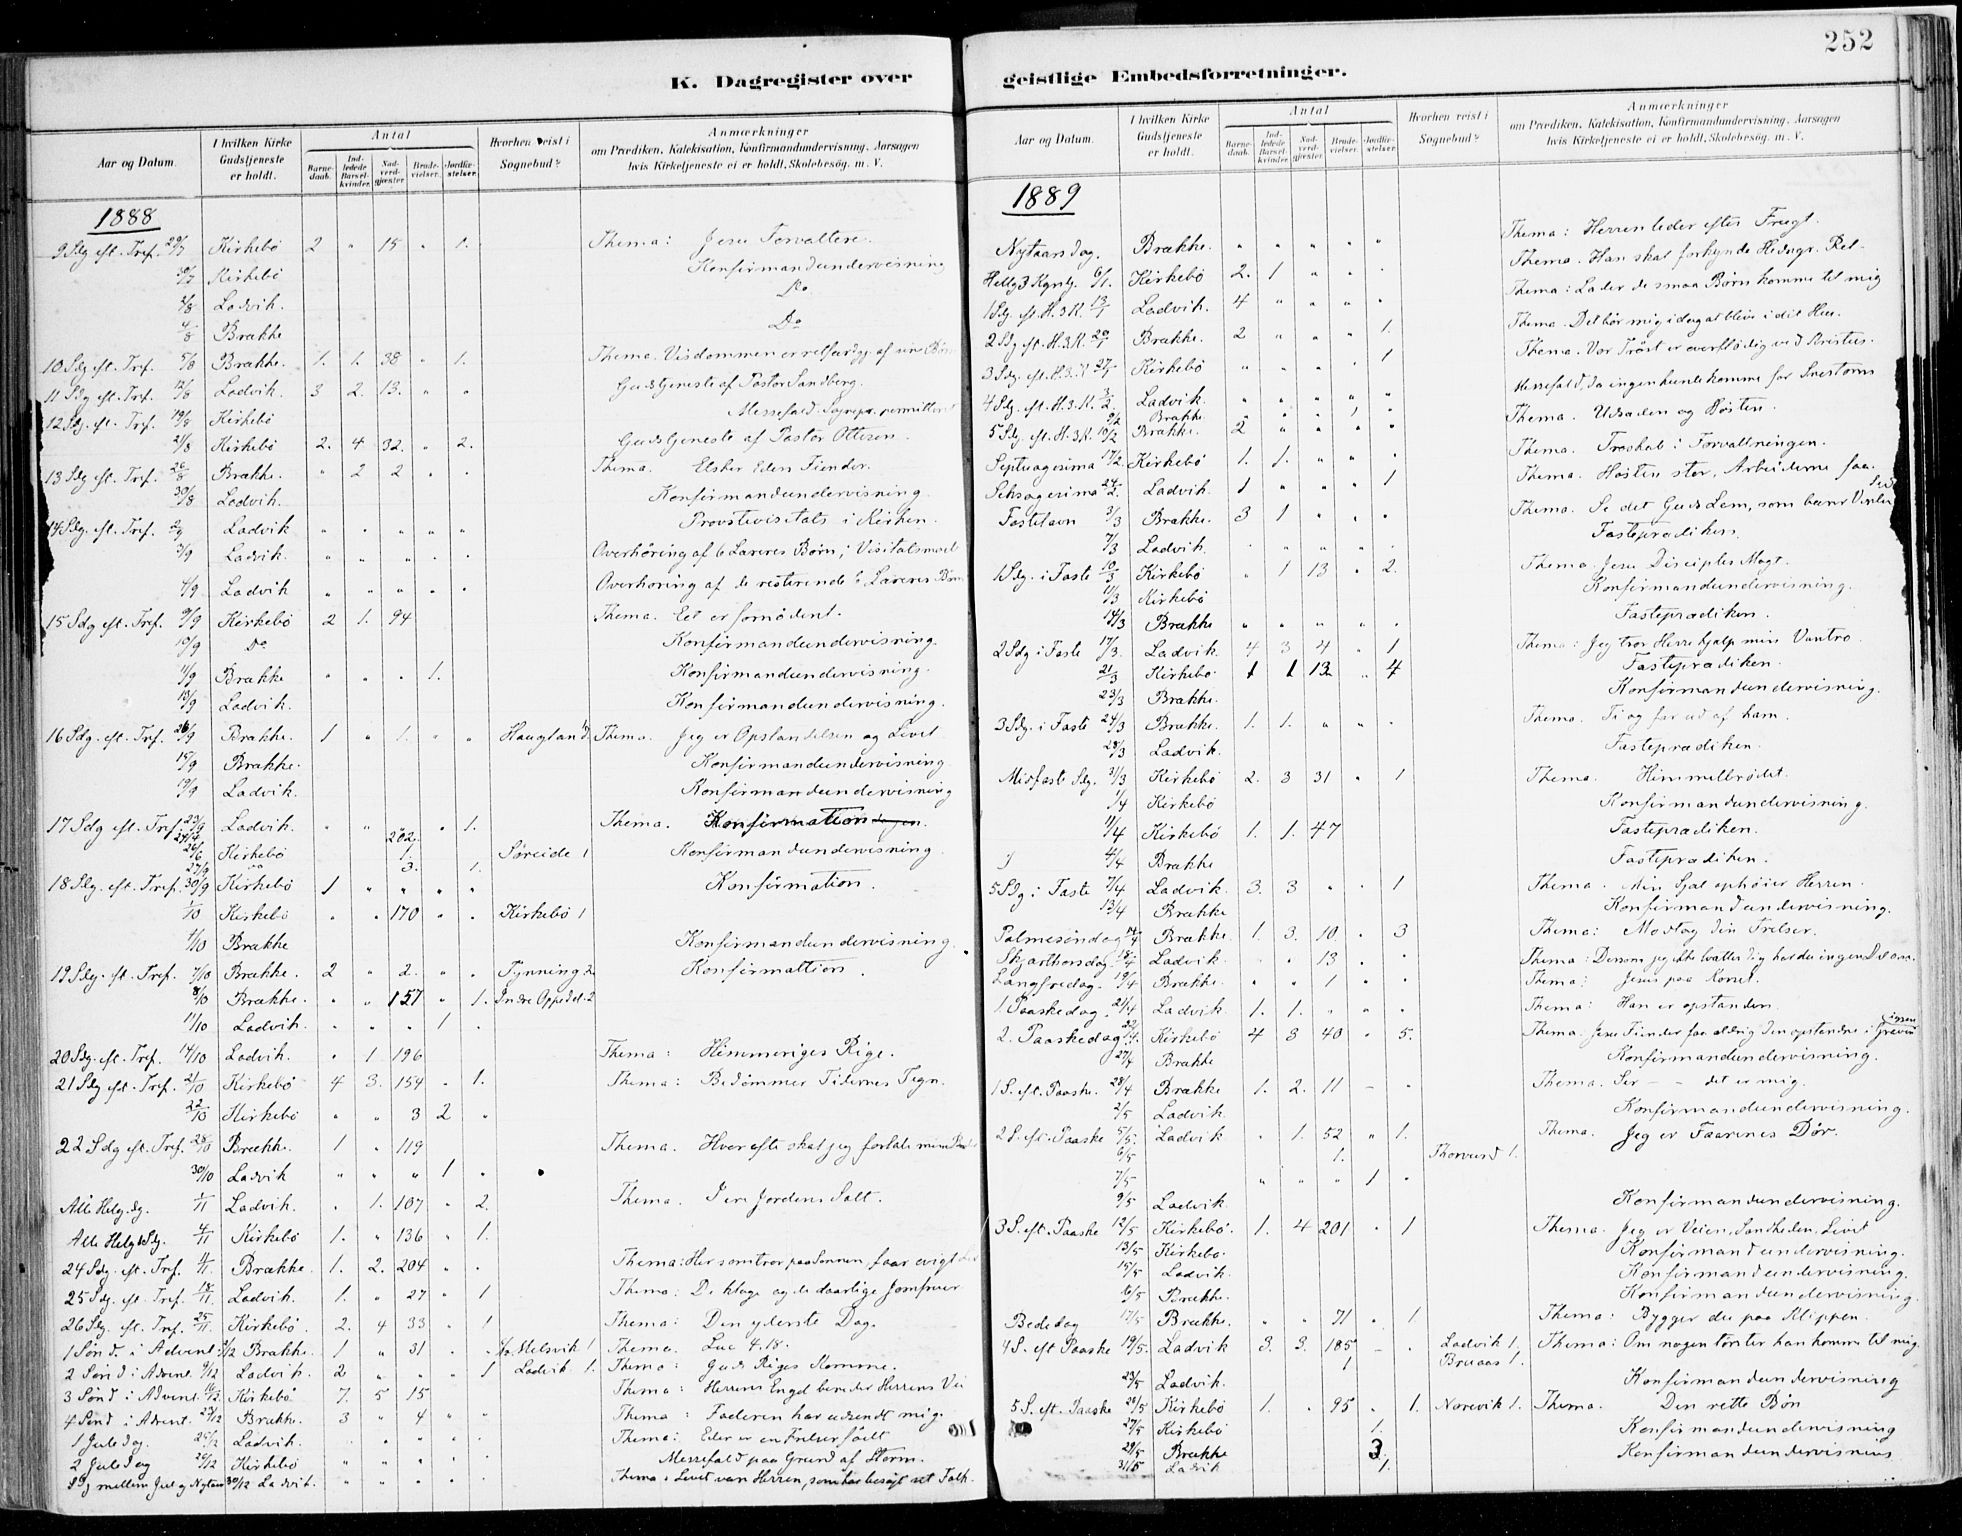 252
K. Dagregister over
Aar og Datum.
I hvilken Kirke Gudstjeneste er holdt.
Antal
Barnedaab.
Indledede Barselkvinder.
Nadverdgjæster.
Brudevielser.
Jordfæstelser.
Hvorhen reist i Sognebud?
Anmærkninger
om Prædiken, Katekisation, Konfirmandundervisning, Aarsagen
hvis Kirketjeneste ei er holdt, Skolebesög, m. V.
1888
9 Sdg eft. Tref. 29/7 Kirkebö 2 " 15 " 1. Thema: Jesu Forvaltere.
30/7 Kirkebö Konfirmandundervisning
3/8 Ladvik. Do
4/8 Brække Do
10 Sdg eft. Tref. 5/8 Brække. 1. 1. 38 " 1.
11 Sdg eft. Tref. 12/8 Ladvik. 3 2. 13. " " Gudstjeneste af Pastor Sandberg.
12 Sdg. eft. Tref. 19/8 Kirkebö Messefald. Sognepr. permitteret
21/8 Kirkebö 2. 4 32. " 2. Gudstjeneste af Pastor Ottesen.
13 Sdg eft. Tref. 26/8 Brække. " 2 2 " " Thema. Elsker Eders Fiender.
30/8 Ladvik. Konfirmandundervisning.
14 Sdg. eft. Tref. 2/9 Ladvik " " " " " Provstevisitats i Kirken.
3/9 Ladvik. " " " " " Overhöring af 6 Læreres Börn; Visitatsmöde
4/9 Ladvik " " " " " Overhöring af de resterende 6 Læreres Börn
15 Sdg eft. Tref. 9/9 Kirkebö 2 1. 94 Thema. Eet er fornödent.
10/9 Do Konfirmandundervisning.
11/9 Brække " " " 1. Konfirmandundervisning.
13/9 Ladvik. Konfirmandundervisning.
16 Sdg. eft. Tref. 16/9 Brække. 1 " 1. " " Haugland 1 Thema. Jeg er Opstandelsen og Livet.
15/9 Brække. Konfirmandundervisning.
19/9 Ladvik. Konfirmandundervisning
17 Sdg eft. Tref. 23/9 Ladvik. " " 202. " 1. Thema. Konfirmation
Kirkebö 1. Söreide 1 Konfirmandundervisning.
27/9 3. 1.
18 Sdg. eft. Tref. 30/9 Kirkebö 1 " " " " Konfirmation.
1/10 Kirkebö " " 170 " " Kirkebö 1
4/10 Brække Konfirmandundervisning.
19 Sdg. eft. Tref. 7/10 Brække. 2 " 2. " " Tynning 2 Konfirmattion.
8/10 Brække. " " 157 " 1. Indre Oppedal 2
11/10 Ladvik. " " " 1 "
20 Sdg. eft. Tref. 14/10 Ladvik. " 1 196 Thema: Himmeriges Rige.
21 Sdg eft. Tref. 21/10 Kirkebö 4 3. 154 " 1. Thema: Bedömmer Tidernes Tegn.
22/10 Kirkebö " " 3 2 "
22 Sdg eft. Tref. 28/10 Brække. 1 " 119 Thema.
30/10 Ladvik " " " 1 "
Alle Helg. dg. 1/11 Ladvik. " 1. 107 " 2. Thema. I ere Jordens Salt.
Alle Helg. Sdg. 4/11 Kirkebö 1. " 136 " 1.
24 Sdg. eft. Tref. 11/11. Brække. 1. 2. 204 " " Thema: Hver som tror paa Sønnen, faar evigt Liv
25 Sdg. eft. Tref. 18/11. Ladvik. 1. " 27 " 1 Thema: De kloge og de daarlige Jomfruer
26 Sdg. eft. Tref. 25/11. Kirkebö. 2. 4 33 " 1 Thema: Den yderste Dag.
1 Sönd. i Advent 2/12 Brække. 1 " 31 " " Melsvik 1 Thema. Luc 4.18.
2 Sönd i Advent 9/12 Ladvik. 2 " " " 1 Ladvik 1. Thema: Guds Riges Komme.
3 Sönd. i Advent 16/12 Kirkebö 7. 5 15 Thema: Herrens Engel bereder Herrens Vei
4 Sönd i Advent 23/12 Brække. 3 " 4 " " Thema: Faderen har udsendt mig.
1 Juledag. 25/12 Ladvik. " " " " " Thema: Eder er en Frelser födt
2 Juledag 26/12 Kirkebö " " " " " Messefald paa Grund af Storm.
Sdg mellem Jul og Nytaar 30/12 Ladvik. " " " " " Thema: Lovet være Herren, som har besögt sit Folk.
geistlige Embedsforretninger.
Aar og Datum.
I hvilken Kirke Gudstjeneste er holdt.
Antal
Barnedaab.
Indledede Barselkvinder.
Nadverdgjæster.
Brudevielser.
Jordfæstelser.
Hvorhen reist i Sognebud?
Anmærkninger
om Prædiken, Katekisation, Konfirmandundervisning, Aarsagen
hvis Kirketjeneste ei er holdt, Skolebesög, m. V.
1889
Nytaarsdag. Brække. " " " " " Thema: Herren leder efter Frugt.
Hellig 3 Kgrsdg. 6/1. Kirkebö 2. 1 " " " Thema. Han skal forkynde Hedngr. Ret
1 Sdg. eft. H. 3 K. 13/1 Ladvik. 4 " " " " Thema: Lader de smaa Børn komme til mig
2 Sdg eft. H. 3 K. 20/1 Brække. 2 " " " 1. Thema. Det bör mig idag at blive i dit Hus.
3 Sdg. eft. H. 3 K 27/1 Kirkebö " " " " 1 Thema. Vor Tröst er overflödig ved Kristus.
4 Sdg. eft. H. 3. K. 3/2 Ladvik. " " " " " Messefald, da ingen kunde komme for Snestorm
9/2 Brække " " " 1 "
5 Sdg. eft. H. 3 K. 10/2 Brække. 2 " " " " Thema. Udsæden og Hösten.
Septuagesima 17/2. Kirkebö 1. 1. " " " Thema. Troskab i Forvaltningen.
Seksagesima 24/2. Ladvik. 1 " " " 1 Thema. Hösten stor, Arbeiderne faa.
Fastelavn 3/3 Brække. 3 1 " " " Thema. Se det Guds Lam, som bærer Verdens Synd
7/3 Ladvik. " " " " Fasteprædiken.
1 Sdg. i Faste 10/3 Kirkebö " 1 13 " 2. Thema. Jesu Disciples Magt.
11/3 Kirkebö Konfirmandundervisning.
14/3 Brække " " " " " Fasteprædiken.
2 Sdg i Faste 17/3. Ladvik. 4 3 4 " 1 Thema: Jeg tror Herre hjælp min Vantro.
21/3 Kirkebö 1 1 13 " 4 Fasteprædiken.
23/3 Brække. Konfirmandundervisning.
3 Sdg. i Faste 24/3 Brække. 1. 1. " " " Thema. Ti og far ud af ham.
28/3 Ladvik. Fasteprædiken.
Midfaste Sdg. 31/3 Kirkebö 2. 3 31 " 1 Thema. Himmelbrödet.
1/4 Kirkebö Konfirmandundervisning.
11/4 Kirkebö 1. 1. 47 Fasteprædiken.
4/4 Brække Fasteprædiken.
5 Sdg. i Faste 7/4 Ladvik. 3. 3 " " 1 Thema. Min Sjæl ophöier Herren.
13/4 Brække Konfirmandundervisning.
Palmesöndag 14/4 Brække. 1. 3. 10. " 3 Thema: Modtag din Frelser.
Skjærthorsdag 18/4 Ladvik. " " 13 " " Thema: Dersom jeg ikke tvætter dig har du ingen Del
Langfredag. 19/4 Brække. " " 1 " " Thema: Jesus paa Korset.
1 Paaskedag. 21/4 Ladvik. 1. 1. " " " Thema: Han er opstanden.
2. Paaskedag 22/4. Kirkebö 4 3 40 " 5. Thema. Jesu Fiender faa aldrig den opstandne i Graven igjen
27/4 Brække Konfirmandundervisning.
1 S. eft. Paaske. 28/4 Brække 1. 2. 11 – " Thema. Ser – – det er mig.
2/5 Ladvik. Konfirmandundervisning.
2 S. eft. Paaske 5/5. Ladvik " 1. 52 " 1. Thema. Jeg er Faarenes Dör.
6/5 1. 1.
7/5 " " " 1 "
9/5 Ladvik. Konfirmandundervisning.
3 S. eft. Paaske 12/5 Kirkebö. 1. 4 201 " 1 Thema. Jeg er Veien, Sandheden, Livet
13/5 Kirkebö. Konfirmandundervisning.
15/5 Ladvik. Konfirmandundervisning.
16/5 Brække. Konfirmandundervisning.
Bededag 17/5 Brække. " " 71 " 1 Thema: Bygger du paa Klippen.
4 S. eft Paaske 19/5. Ladvik 3. 3. 185 – " Ladvik 1, Thema: Om nogen törster han komme til mig
1 Bruaas 1.
23/5 Ladvik. Konfirmandundervisning
5 S. eft. Paaske 26/5 Kirkebö 1. " 95 " 1. Norevik 1. Thema. Den rette Bön
27/5 Kirkebö 1. Konfirmandundervisning
29/5 Brække 3 Konfirmandundervisning
31/5 Ladvik 1.